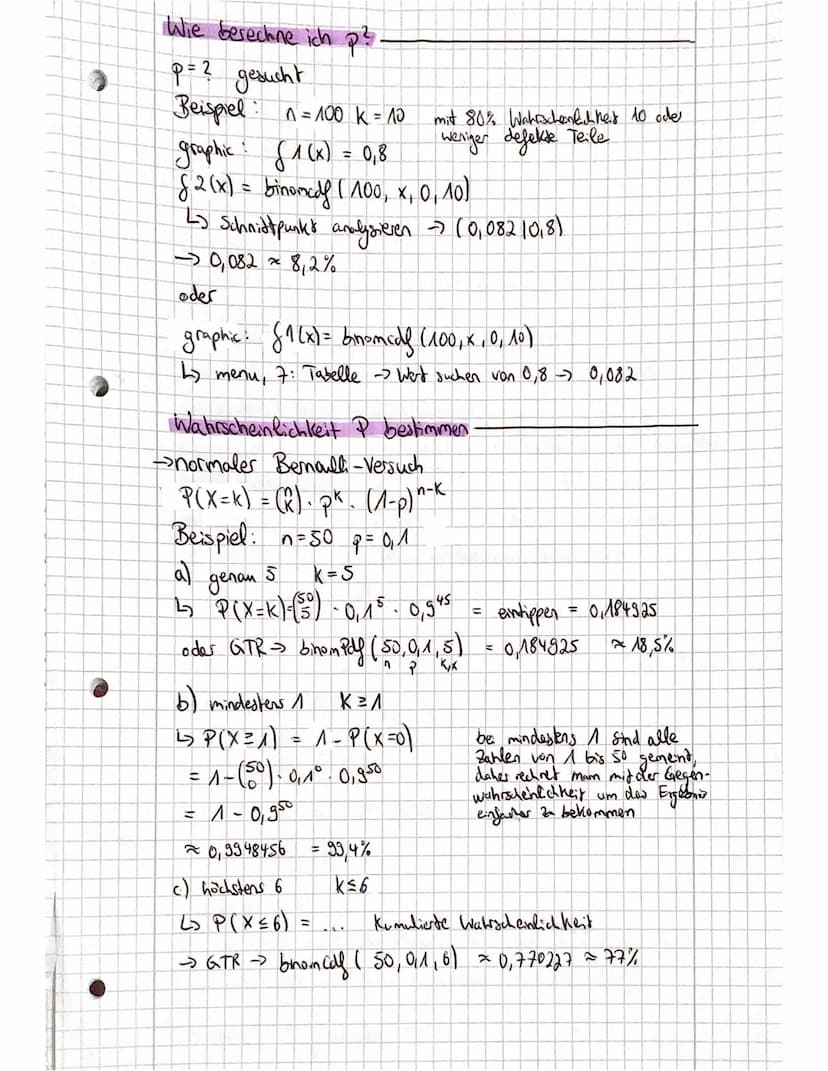 Wie berechne ich p?
p = ? gesucht
Beispiel: n = 100 k = 10 mit 80% Wahrscheinlichkeit 10 oder
weniger defekte Teile
graphic: f1(x) = 0,8
f2(x) = binomcdf(100, x, 0, 10)
↳ Schnittpunkt analysieren → (0,082|0,8)
→ 0,082 ≈ 8,2%
oder
graphic: f1(x) = binomcdf(100, x, 0, 10)
↳ menu, 7: Tabelle → Wert suchen von 0,8 → 0,082
Wahrscheinlichkeit P bestimmen
→ normaler Bernoulli-Versuch
P(X=k) = (n k) · p^k · (1-p)^n-k
Beispiel: n = 50 p = 0,1
a) genau 5 k = 5
↳ P(X=k) = (50 5) · 0,1^5 · 0,9^45 = eintippen = 0,184925
oder GTR → binomPdf(50, 0,1, 5) = 0,184925 ≈ 18,5%
n p k,x
b) mindestens 1 K ≥ 1
↳ P(X ≥ 1) = 1 - P(X=0)
= 1 - (50 0) · 0,1^0 · 0,9^50
= 1 - 0,9^50
≈ 0,9948456 = 99,4%
bei mindestens 1 sind alle
Zahlen von 1 bis 50 gemeint,
daher rechnet man mit der Gegen-
wahrscheinlichkeit um das Ergebnis
einfacher zu bekommen
c) höchstens 6 k ≤ 6
↳ P(X ≤ 6) = ... Kumulierte Wahrscheinlichkeit
→ GTR → binomcdf(50, 0,1, 6) ≈ 0,770227 ≈ 77%